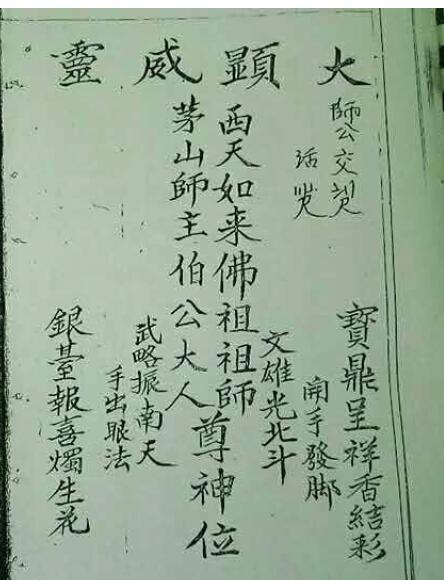 大顯威靈
師公交
寶鼎呈祥香結彩
開手發脚
文雄光北斗
西天如来佛祖祖師
茅山師主伯公大人
尊神位
武略振南天
手出眼法
銀臺報喜燭生花